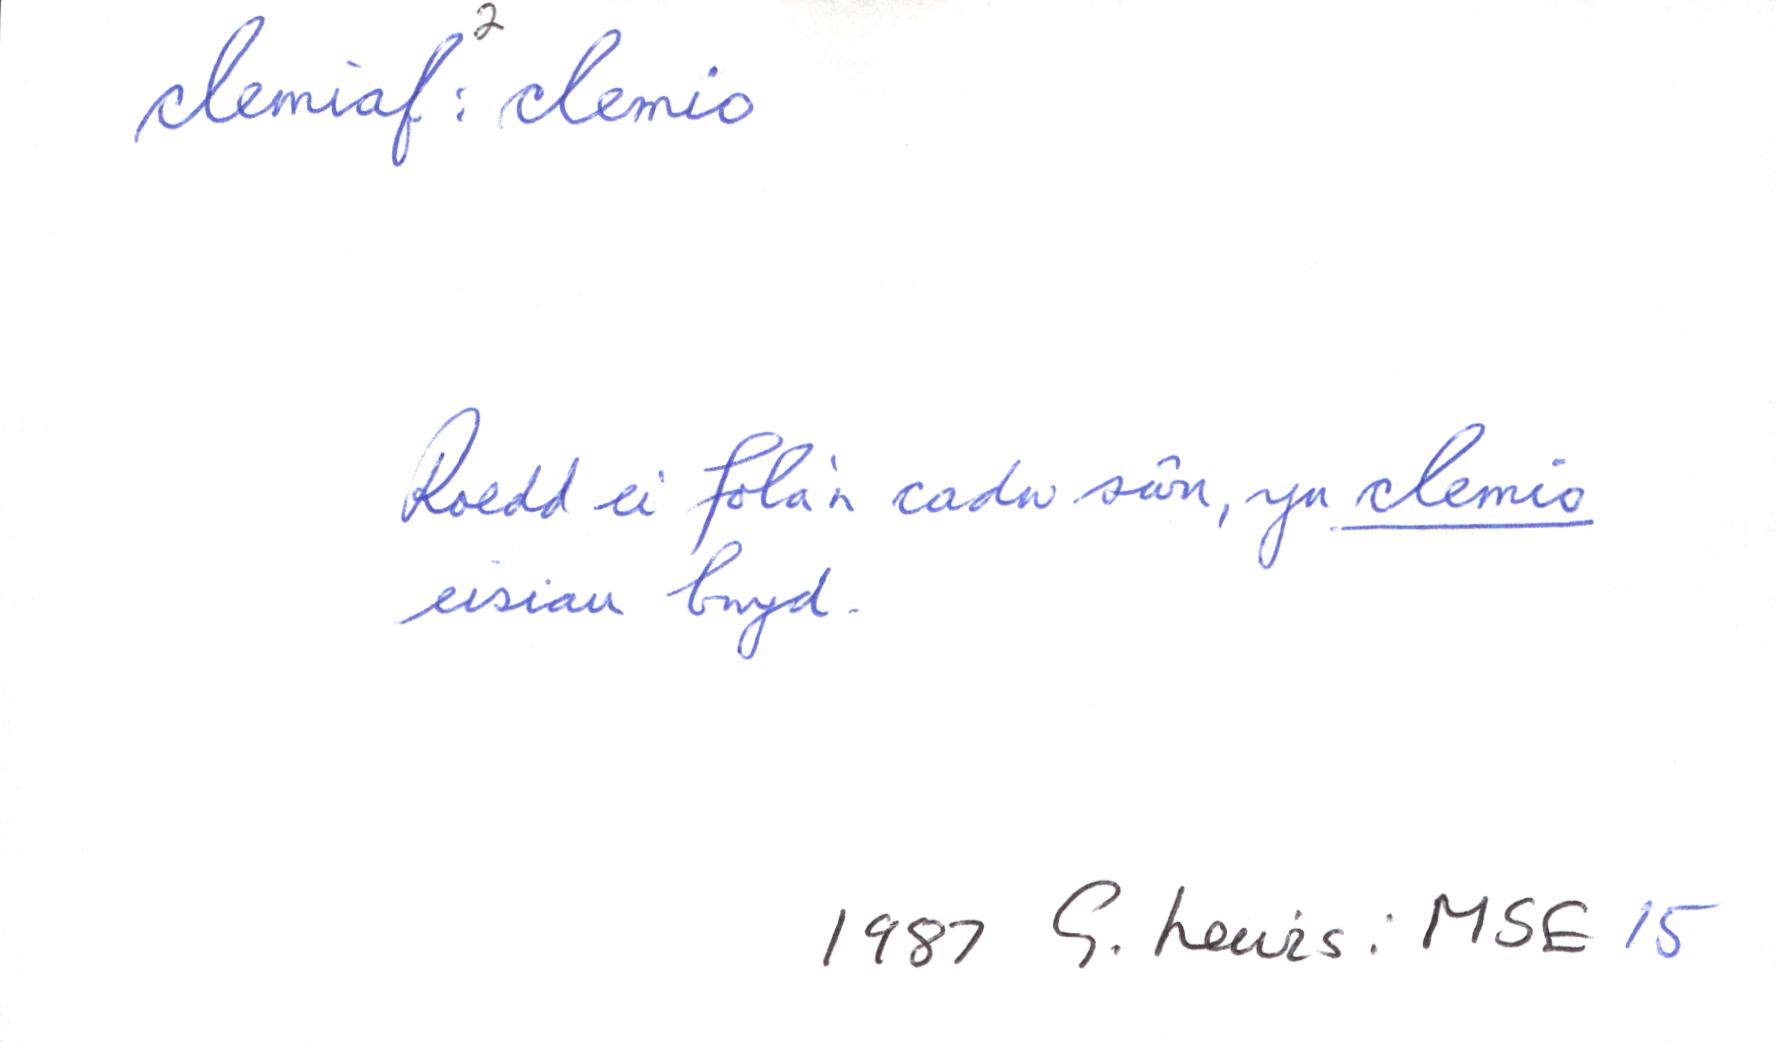 clemiaf²: clemio
Roedd ei fola'n cadw sŵn, yn clemio
eisiau bwyd.
1987 G. Lewis: MSE 15